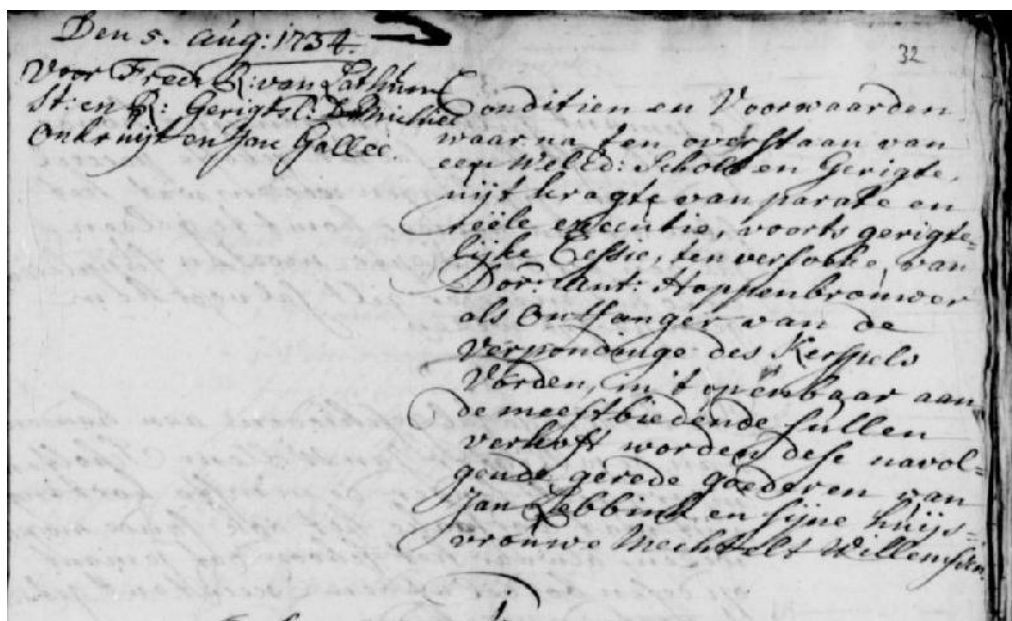 Den 5. Aug: 1734.
32
Voor Fredr R: van Lathum
St: en R: Gerigtsl:
Onkruijt en Jan Gallee
Conditien en Voorwaarden
waar na ten overstaan van
een WelEd: Scholt en Gerigte,
uijt kragte van parate en
reële executie, voorts gerigte-
lijke Cessie, ten versoeke, van
Dor: Ant: Hoppenbrouwer
als Ontfanger van de
Verpondinge des Kerspels
Vorden, in 't openbaar aan
de meestbiedende sullen
verkoft worden dese navol-
gende gerede goederen van
Jan Lebbink en sijne huijs-
vrouwe Mechtelt Willemsen.